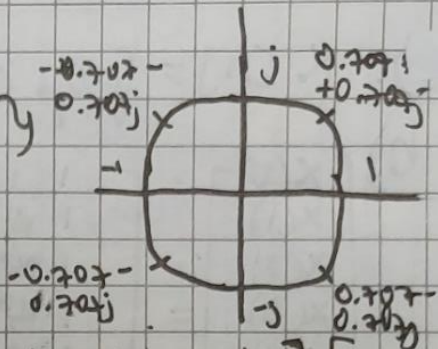 j
0.707
+0.707j
-0.707-
0.707j
-1
1
-0.707-
0.707j
-j
0.707-
0.707j